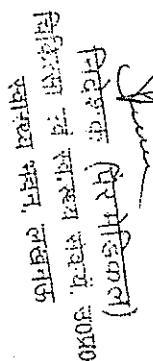 निदेशक (पैरा मेडिकल)
चिकित्सा एवं स्वास्थ्य सेवायें, उ०प्र०
स्वास्थ्य भवन, लखनऊ